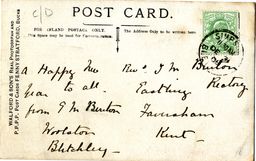 C/D
POST CARD.
FOR INLAND POSTAGE ONLY.
This Space may be used for Correspondence.
The Address Only to be written here.
WALFORD & SON'S REAL PHOTOGRAPH AND
P.P.P.P. POST CARDS FENNY STRATFORD, BUCKS
a Happy New
year to all
from E M Burton
Woolston
Bletchley
Revd J M Burton
Eastling Rectory
Faversham
Kent